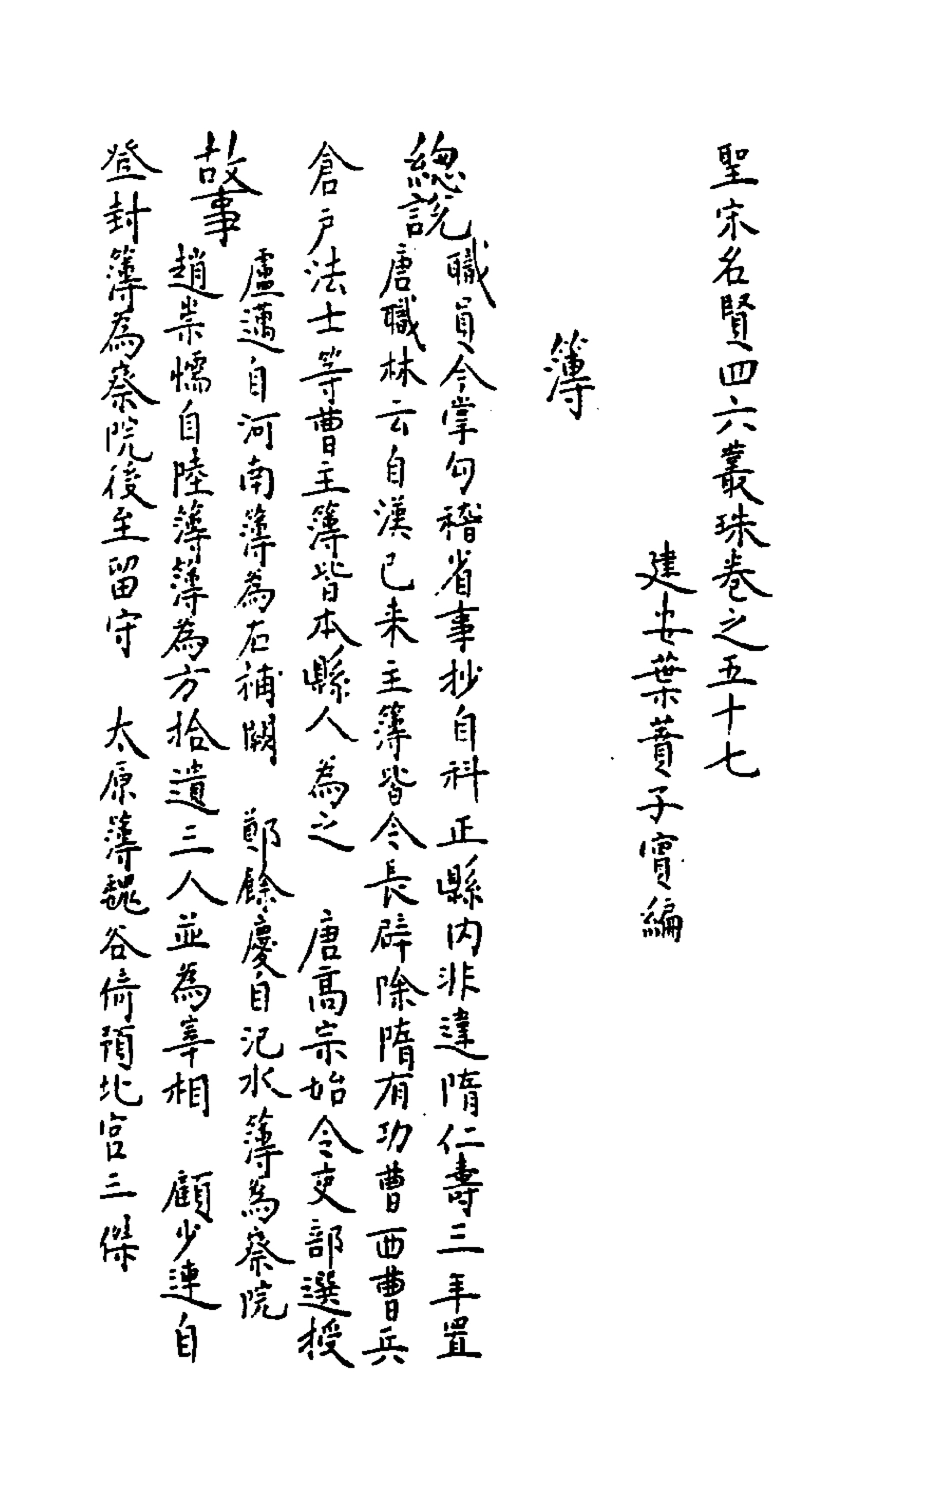 聖宋名賢四六叢珠卷之五十七
建安葉蕡子實編
簿
總說
職員令掌勾稽省事抄自科正縣內非違隋仁壽三年置
唐職林云自漢已来主簿皆令長辟除隋有功曹西曹兵
倉户法士等曹主簿皆本縣人為之 唐高宗始令吏部選授
故事
盧邁自河南簿為右補闕 鄭餘慶自汜水簿為察院
趙崇懦自陸簿簿為方拾遺三人並為宰相 顧少連自
登封簿為察院後至留守 太原簿魏谷倚預北宫三傑